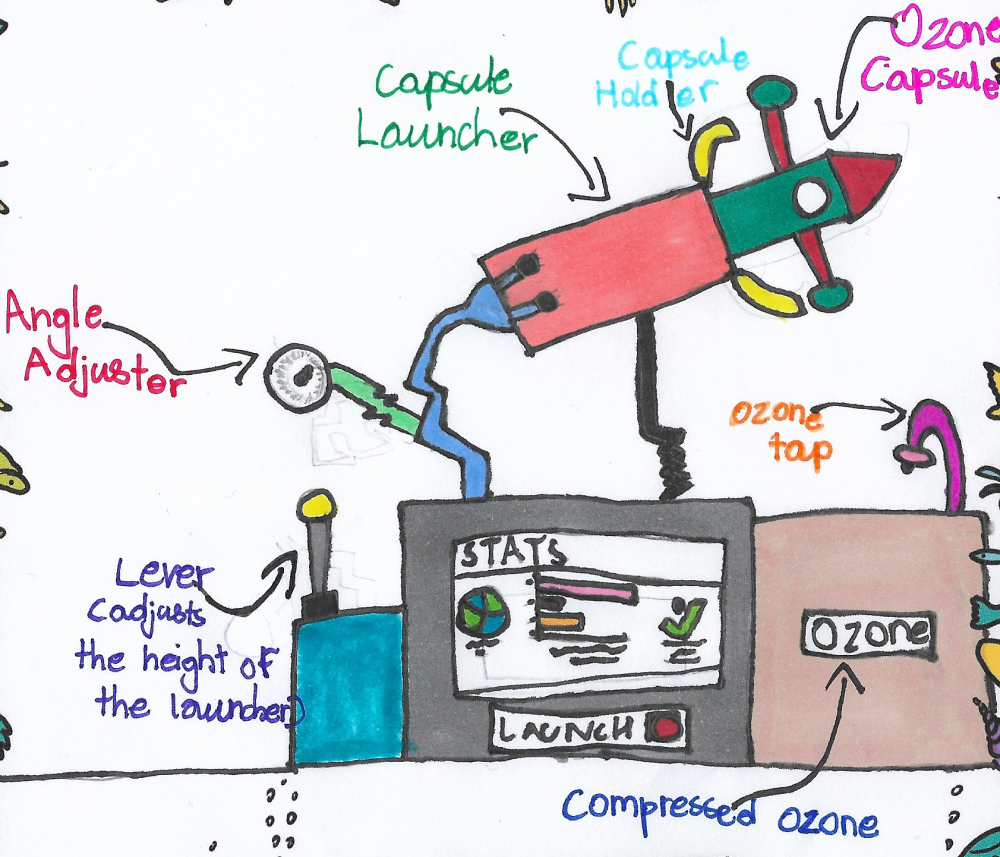 Ozone
Capsule
Capsule
Holder
Capsule
Launcher
Angle
Adjuster
Ozone
tap
Lever
(adjusts
the height of
the launcher)
STATS
OZONE
LAUNCH
Compressed Ozone